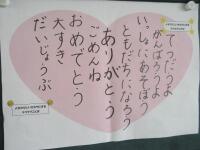 てつだうよ
がんばろうよ
いっしょにあそぼう
ともだちになろう
ありがとう
ごめんね
おめでとう
大すき
だいじょうぶ